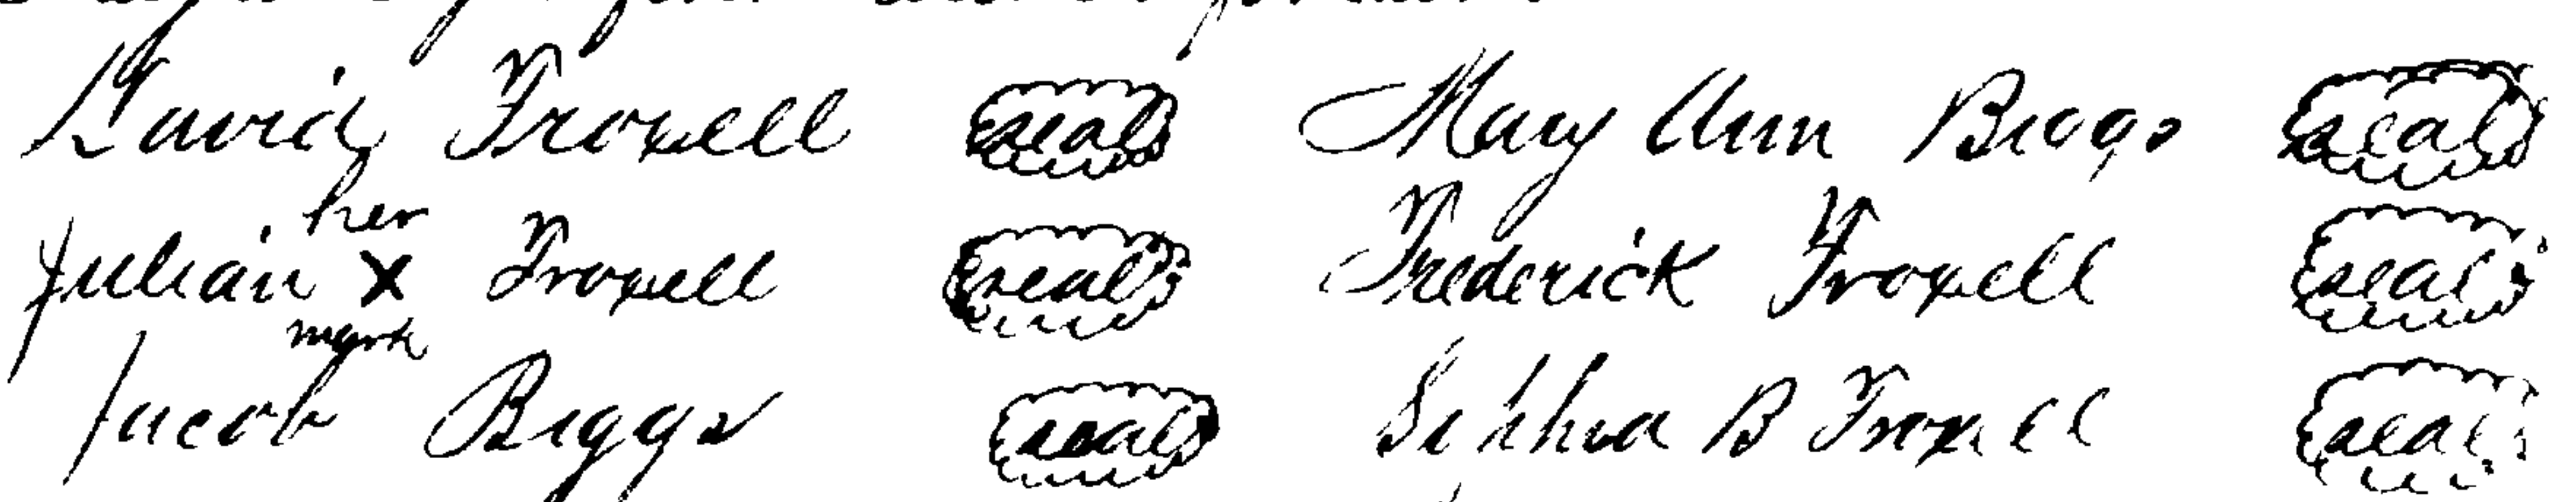 David Troxell seal Mary Ann Biggs seal
her
Julian X Troxell seal Frederick Troxell seal
mark
Jacob Biggs seal Sophia B Troxell seal